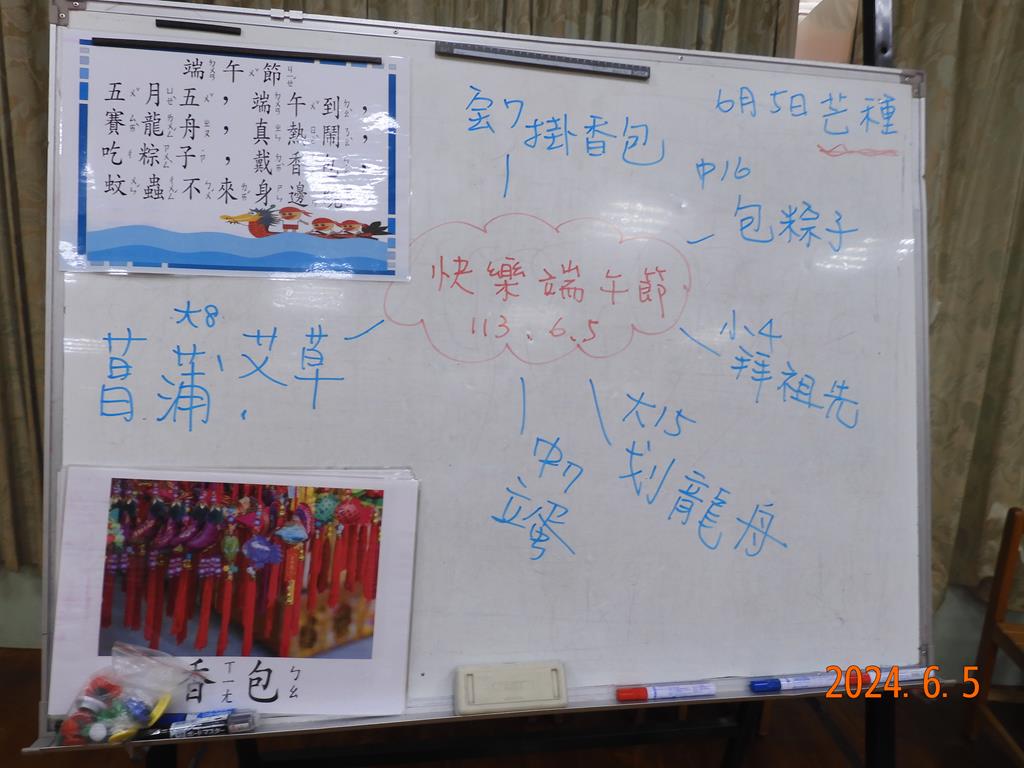 端午節
五月五，端午到，
賽龍舟，真熱鬧，
吃粽子，戴香包，
蚊蟲不來身邊繞
6月5日芒種
掛香包
中16
包粽子
快樂端午節
113.6.5
大8
菖蒲、艾草
小4
拜祖先
大15
划龍舟
中7
立蛋
香ㄒㄧㄤ包ㄅㄠ
2024. 6. 5